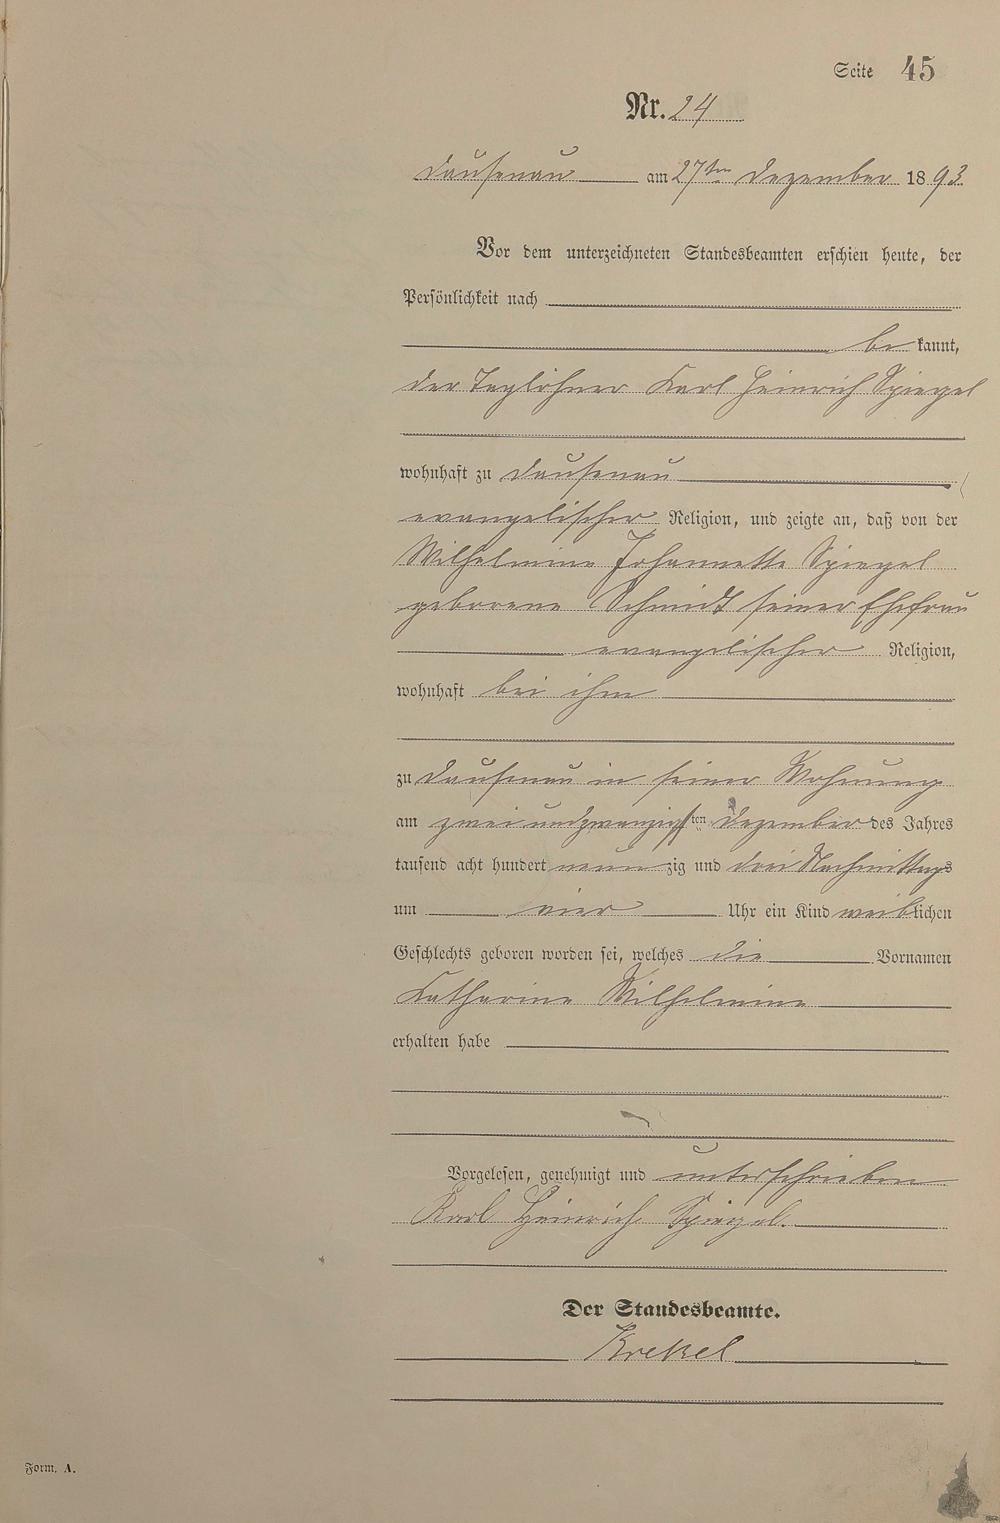 Seite 45
Nr. 24
Dausenau am 27ten Dezember 1893
Vor dem unterzeichneten Standesbeamten erschien heute, der
Persönlichkeit nach
be kannt,
der Taglöhner Karl Heinrich Spiegel
wohnhaft zu Dausenau
evangelischer Religion, und zeigte an, daß von der
Wilhelmine Johannette Spiegel
geborene Schmidt seiner Ehefrau
evangelischer Religion,
wohnhaft bei ihm
zu Dausenau in seiner Wohnung
am zwei und zwanzigsten Dezember des Jahres
tausend acht hundert neunzig und drei Nachmittags
um vier Uhr ein Kind weiblichen
Geschlechts geboren worden sei, welches die Vornamen
Katharine Wilhelmine
erhalten habe
Vorgelesen, genehmigt und unterschrieben
Karl Heinrich Spiegel.
Der Standesbeamte.
Krekel
Form. A.